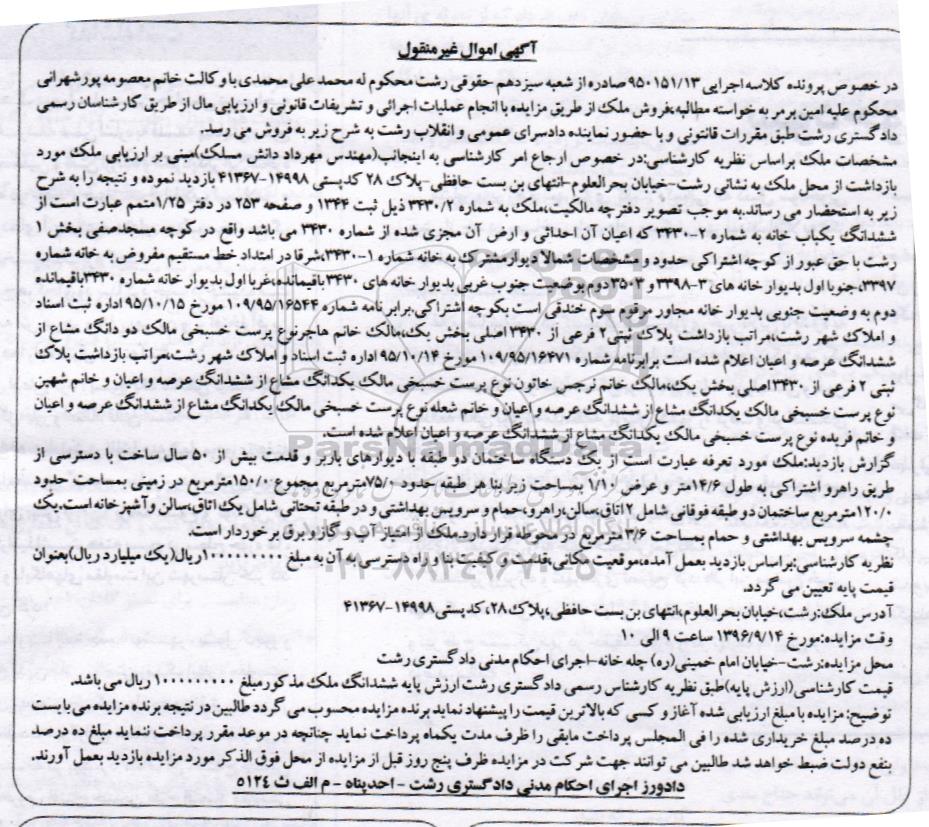 آگهی اموال غیرمنقول
در خصوص پرونده کلاسه اجرایی ۹۵۰۱۵۱/۱۳ صادره از شعبه سیزدهم حقوقی رشت محکوم له محمدعلی محمدی با وکالت خانم معصومه پورشهرانی
محکوم علیه امین برمر به خواسته مطالبه، فروش ملک از طریق مزایده با انجام عملیات اجرائی و تشریفات قانونی و ارزیابی مال از طریق کارشناسان رسمی
دادگستری رشت طبق مقررات قانونی و با حضور نماینده دادسرای عمومی و انقلاب رشت به شرح زیر به فروش می رسد.
مشخصات ملک براساس نظریه کارشناسی: در خصوص ارجاع امر کارشناسی به اینجانب (مهندس مهرداد دانش مسلک) مبنی بر ارزیابی ملک مورد
بازداشت از محل ملک به نشانی رشت-خیابان بحرالعلوم-انتهای بن بست حافظی-پلاک ۲۸ کدپستی ۱۴۹۹۸-۴۱۳۶۷ بازدید نموده و نتیجه را به شرح
زیر به استحضار می رساند. به موجب تصویر دفترچه مالکیت، ملک به شماره ۳۴۳۰/۲ ذیل ثبت ۱۳۴۴ و صفحه ۲۵۳ در دفتر ۱/۲۵ متمم عبارت است از
ششدانگ یکباب خانه به شماره ۲-۳۴۳۰ که اعیان آن احداثی و ارض آن مجزی شده از شماره ۳۴۳۰ می باشد واقع در کوچه مسجدصفی بخش ۱
رشت با حق عبور از کوچه اشتراکی حدود و مشخصات شمالا دیوار مشترک به خانه شماره ۱-۳۴۳۰، شرقا در امتداد خط مستقیم مفروض به خانه شماره
۳۳۹۷، جنوبا اول بدیوار خانه های ۳-۳۳۹۸ و ۳۵۰۳ دوم بوضعیت جنوب غربی بدیوار خانه های ۳۴۳۰ باقیمانده، غربا اول بدیوار خانه شماره ۳۴۳۰ باقیمانده
دوم به وضعیت جنوبی بدیوار خانه مجاور مرقوم سوم خندقی است بکوچه اشتراکی. برابر نامه شماره ۱۰۹/۹۵/۱۶۵۴۴ مورخ ۹۵/۱۰/۱۵ اداره ثبت اسناد
و املاک شهر رشت، مراتب بازداشت پلاک ثبتی ۲ فرعی از ۳۴۳۰ اصلی بخش یک، مالک خانم هاجر نوع پرست خسبخی مالک دو دانگ مشاع از
ششدانگ عرصه و اعیان اعلام شده است برابر نامه شماره ۱۰۹/۹۵/۱۶۴۷۱ مورخ ۹۵/۱۰/۱۴ اداره ثبت اسناد و املاک شهر رشت، مراتب بازداشت پلاک
ثبتی ۲ فرعی از ۳۴۳۰ اصلی بخش یک، مالک خانم نرجس خاتون نوع پرست خسبخی مالک یکدانگ مشاع از ششدانگ عرصه و اعیان و خانم شهین
نوع پرست خسبخی مالک یکدانگ مشاع از ششدانگ عرصه و اعیان و خانم شعله نوع پرست خسبخی مالک یکدانگ مشاع از ششدانگ عرصه و اعیان
و خانم فریده نوع پرست خسبخی مالک یکدانگ مشاع از ششدانگ عرصه و اعیان اعلام شده است.
گزارش بازدید: ملک مورد تعرفه عبارت است از یک دستگاه ساختمان دو طبقه با دیوارهای باربر و قدمت بیش از ۵۰ سال ساخت با دسترسی از
طریق راهرو اشتراکی به طول ۱۴/۶ متر و عرض ۱/۱۰ بمساحت زیر بنا هر طبقه حدود ۷۵/۰ مترمربع مجموع ۱۵۰/۰ مترمربع در زمینی بمساحت حدود
۱۲۰/۰ مترمربع ساختمان دو طبقه فوقانی شامل ۲ اتاق، سالن، راهرو، حمام و سرویس بهداشتی و در طبقه تحتانی شامل یک اتاق، سالن و آشپزخانه است. یک
چشمه سرویس بهداشتی و حمام بمساحت ۳/۶ مترمربع در محوطه قرار دارد. ملک از امتیاز آب و گاز و برق برخوردار است.
نظریه کارشناسی: براساس بازدید بعمل آمده، موقعیت مکانی، قدمت و کیفیت بنا و راه دسترسی به آن به مبلغ ۱۰۰۰۰۰۰۰۰۰ ریال (یک میلیارد ریال) بعنوان
قیمت پایه تعیین می گردد.
آدرس ملک: رشت، خیابان بحرالعلوم، انتهای بن بست حافظی، پلاک ۲۸، کدپستی ۱۴۹۹۸-۴۱۳۶۷
وقت مزایده: مورخ ۱۳۹۶/۹/۱۴ ساعت ۹ الی ۱۰
محل مزایده: رشت-خیابان امام خمینی (ره) چله خانه-اجرای احکام مدنی دادگستری رشت
قیمت کارشناسی (ارزش پایه) طبق نظریه کارشناس رسمی دادگستری رشت ارزش پایه ششدانگ ملک مذکور مبلغ ۱۰۰۰۰۰۰۰۰۰ ریال می باشد.
توضیح: مزایده با مبلغ ارزیابی شده آغاز و کسی که بالاترین قیمت را پیشنهاد نماید برنده مزایده محسوب می گردد طالبین در نتیجه برنده مزایده می بایست
ده درصد مبلغ خریداری شده را فی المجلس پرداخت مابقی را ظرف مدت یکماه پرداخت نماید چنانچه در موعد مقرر پرداخت ننماید مبلغ ده درصد
بنفع دولت ضبط خواهد شد طالبین می توانند جهت شرکت در مزایده ظرف پنج روز قبل از مزایده از محل فوق الذکر مورد مزایده بازدید بعمل آورند.
دادورز اجرای احکام مدنی دادگستری رشت - احدپناه - م الف ث ۵۱۲۴
ParsNamadData
۰۲۱-۸۸۳۴۹۶۷۰-۵